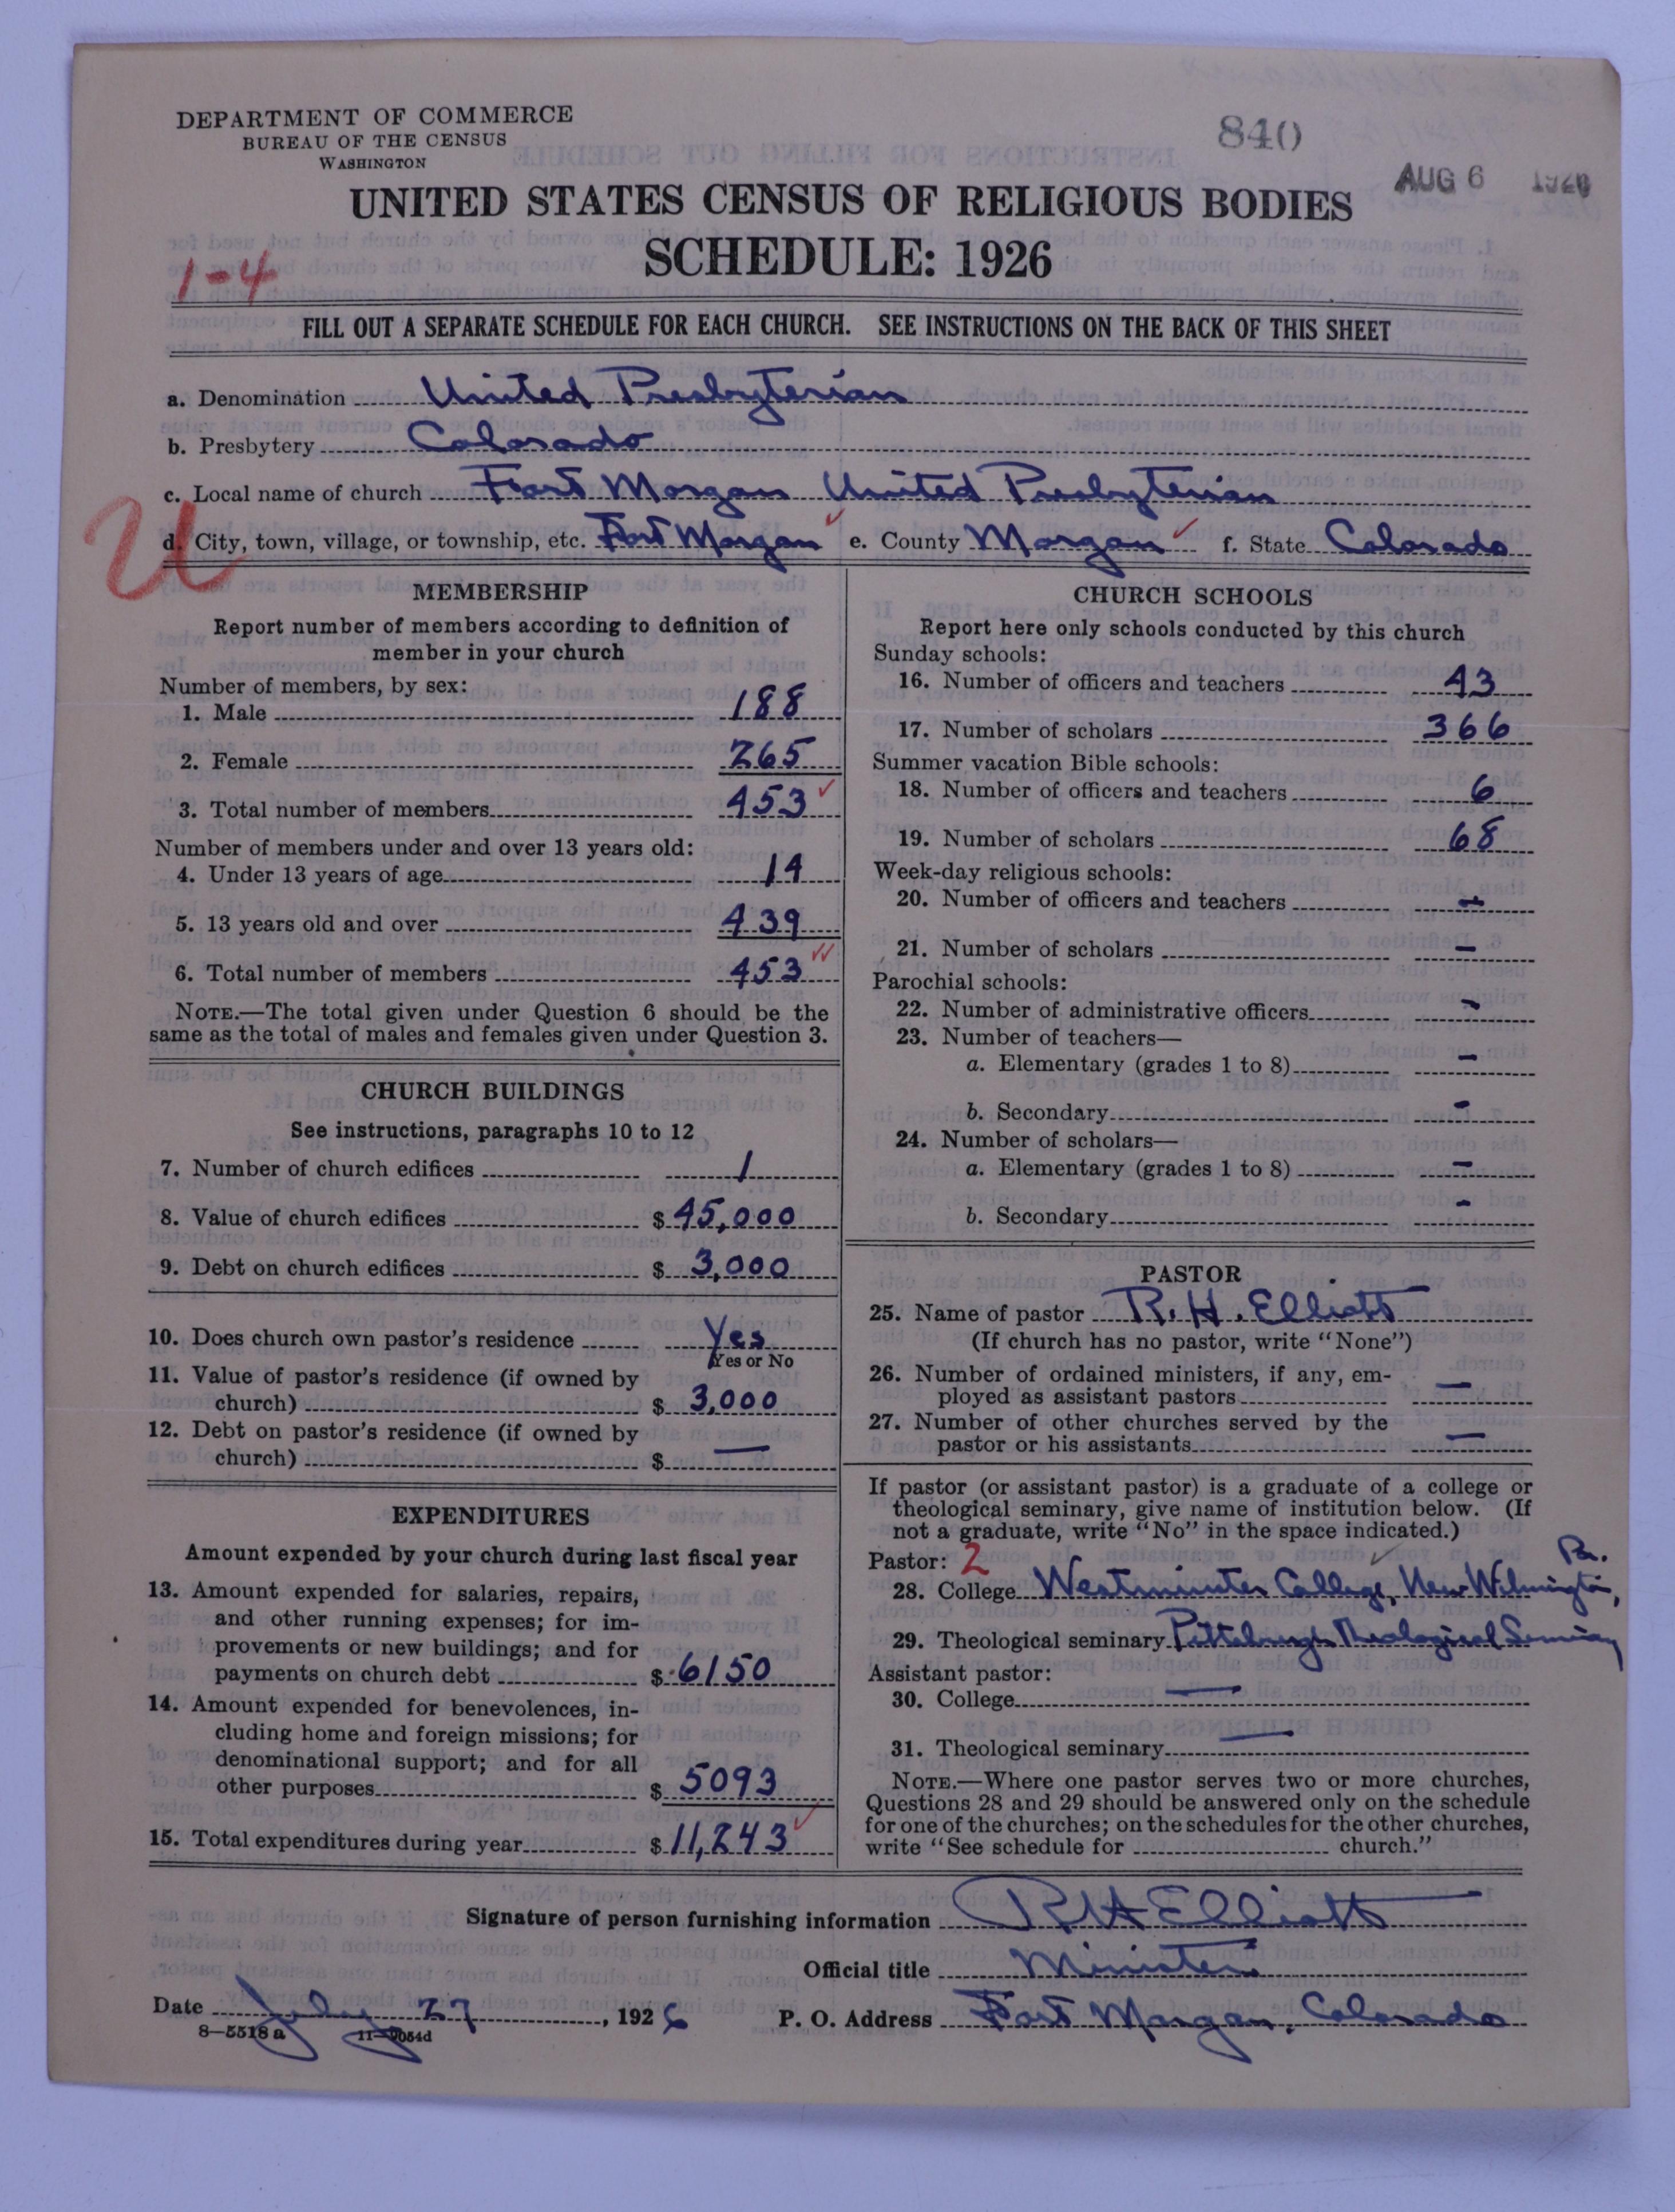 DEPARTMENT OF COMMERCE
BUREAU OF THE CENSUS
WASHINGTON
840
AUG 6 1926
UNITED STATES CENSUS OF RELIGIOUS BODIES
SCHEDULE: 1926
1-4
FILL OUT A SEPARATE SCHEDULE FOR EACH CHURCH. SEE INSTRUCTIONS ON THE BACK OF THIS SHEET
a. Denomination United Presbyterian
b. Presbytery Colorado
c. Local name of church Fort Morgan United Presbyterian
U
d. City, town, village, or township, etc. Fort Morgan e. County Morgan f. State Colorado
MEMBERSHIP
Report number of members according to definition of
member in your church
Number of members, by sex:
1. Male 188
2. Female 265
3. Total number of members 453
Number of members under and over 13 years old:
4. Under 13 years of age 14
5. 13 years old and over 439
6. Total number of members 453
NOTE.—The total given under Question 6 should be the
same as the total of males and females given under Question 3.
CHURCH BUILDINGS
See instructions, paragraphs 10 to 12
7. Number of church edifices 1
8. Value of church edifices $ 45,000
9. Debt on church edifices $ 3,000
10. Does church own pastor's residence Yes
Yes or No
11. Value of pastor's residence (if owned by
church) $ 3,000
12. Debt on pastor's residence (if owned by
church) $ —
EXPENDITURES
Amount expended by your church during last fiscal year
13. Amount expended for salaries, repairs,
and other running expenses; for im-
provements or new buildings; and for
payments on church debt $ 6150
14. Amount expended for benevolences, in-
cluding home and foreign missions; for
denominational support; and for all
other purposes $ 5093
15. Total expenditures during year $ 11,243
CHURCH SCHOOLS
Report here only schools conducted by this church
Sunday schools:
16. Number of officers and teachers 43
17. Number of scholars 366
Summer vacation Bible schools:
18. Number of officers and teachers 6
19. Number of scholars 68
Week-day religious schools:
20. Number of officers and teachers –
21. Number of scholars –
Parochial schools:
22. Number of administrative officers –
23. Number of teachers—
a. Elementary (grades 1 to 8) –
b. Secondary –
24. Number of scholars—
a. Elementary (grades 1 to 8) –
b. Secondary –
PASTOR
25. Name of pastor R. H. Elliott
(If church has no pastor, write "None")
26. Number of ordained ministers, if any, em-
ployed as assistant pastors —
27. Number of other churches served by the
pastor or his assistants —
If pastor (or assistant pastor) is a graduate of a college or
theological seminary, give name of institution below. (If
not a graduate, write "No" in the space indicated.)
Pastor: 2
28. College Westminster College, New Wilmington, Pa.
29. Theological seminary Pittsburgh Theological Seminary
Assistant pastor:
30. College —
31. Theological seminary —
NOTE.—Where one pastor serves two or more churches,
Questions 28 and 29 should be answered only on the schedule
for one of the churches; on the schedules for the other churches,
write "See schedule for church."
Signature of person furnishing information R H Elliott
Official title Minister
Date July 27, 1926 P. O. Address Fort Morgan, Colorado
8—5518 a 11—9054d